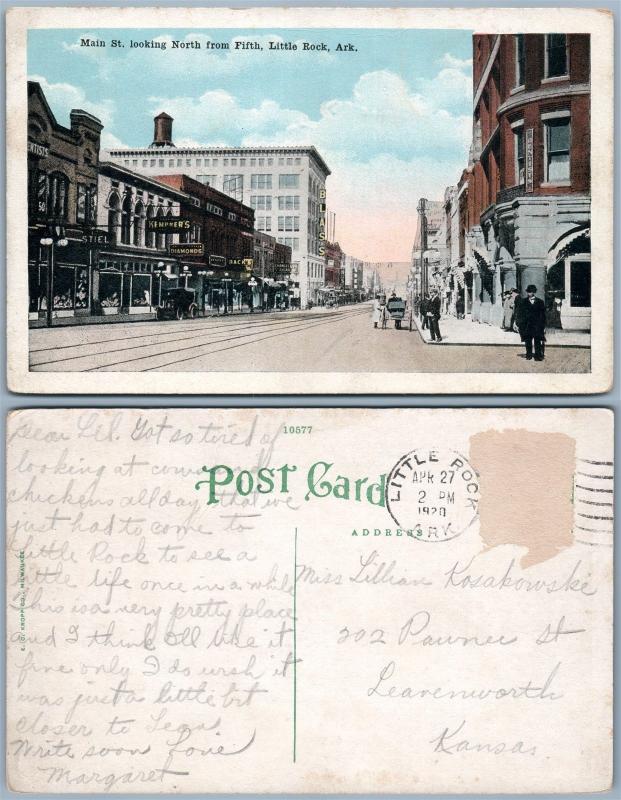 Main St. looking North from Fifth, Little Rock, Ark.
DENTISTS
50
STIEL
KEMPNER'S
DIAMONDS
BLASS
DENTIST
Dear Lil. Got so tired of
looking at cows and
chickens all day that we
just had to come to
Little Rock to see a
little life once in a while
This is a very pretty place
and I think I'll like it
fine only I do wish it
was just a little bit
closer to Leav.
Write soon Love
Margaret
10577
Post Card
ADDRESS
LITTLE ROCK
APR 27
2 PM
1920
ARK.
E. C. KROPP CO., MILWAUKEE
Miss Lillian Kosakowske
302 Pawnee St
Leavenworth
Kansas.